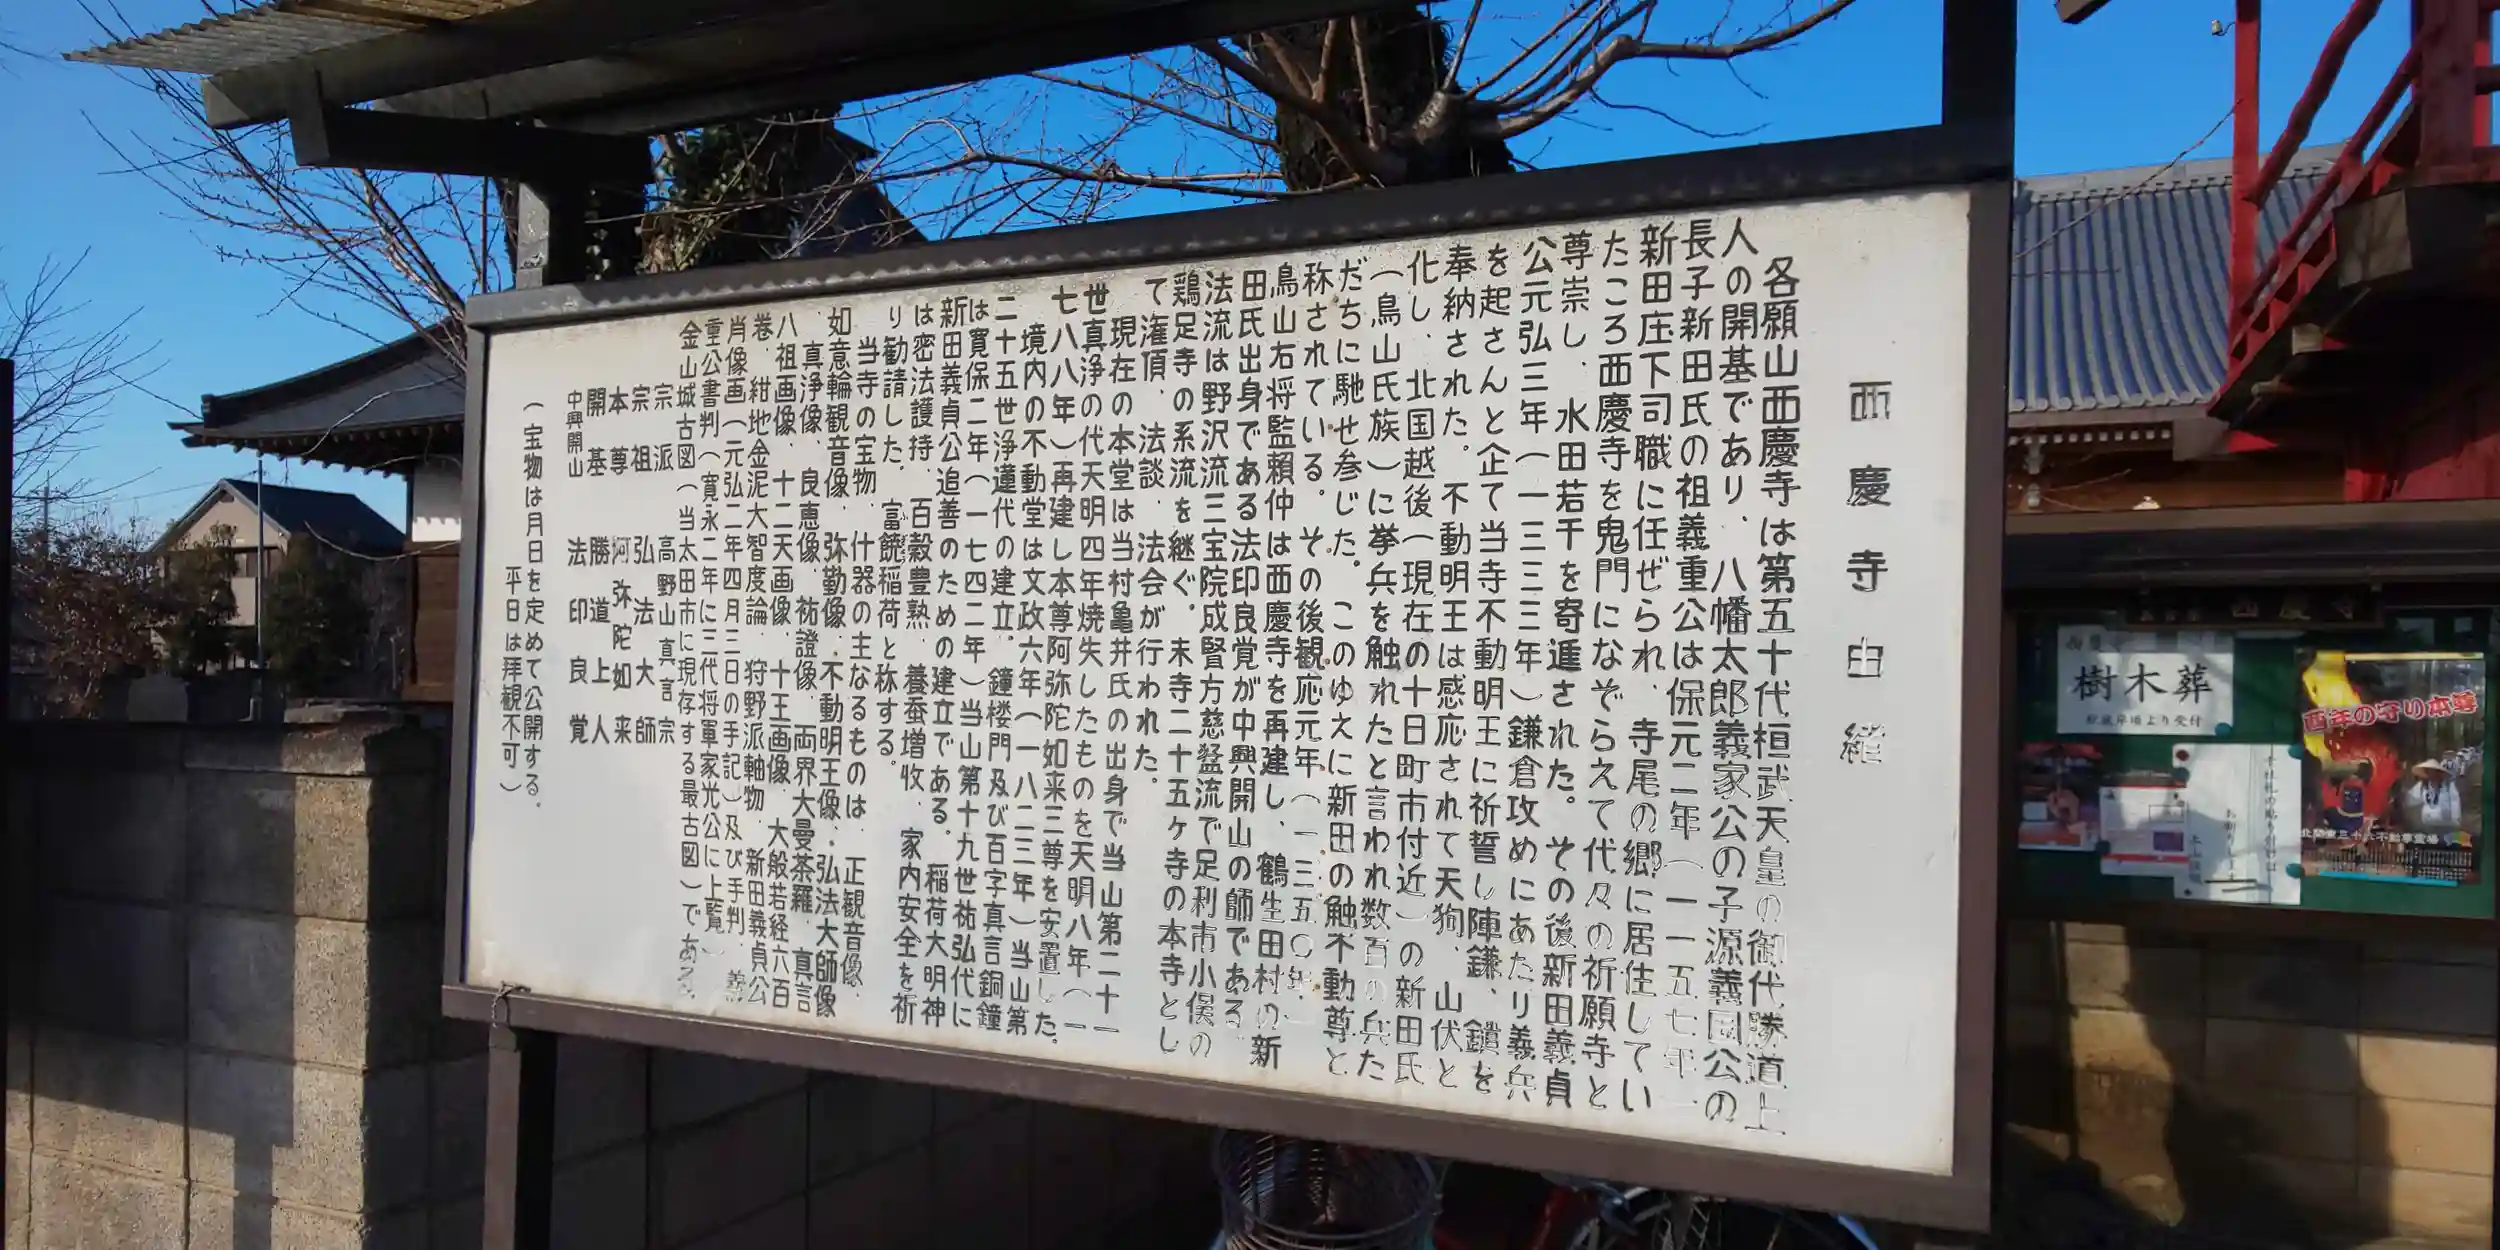 西慶寺由緒
各願山西慶寺は第五十代桓武天皇の御代勝道上
人の開基であり、八幡太郎義家公の子源義国公の
長子新田氏の祖義重公は保元二年(一一五七年)
新田庄下司職に任ぜられ、寺尾の郷に居住してい
たころ西慶寺を鬼門になぞらえて代々の祈願寺と
尊崇し、水田若干を寄進された。その後新田義貞
公元弘三年(一三三三年)鎌倉攻めにあたり義兵
を起さんと企て当寺不動明王に祈誓し陣鎌、鎖を
奉納された。不動明王は感応されて天狗、山伏と
化し、北国越後(現在の十日町市付近)の新田氏
(鳥山氏族)に挙兵を触れたと言われ数百の兵た
だちに馳せ参じた。このゆえに新田の触不動尊と
称されている。その後観応元年(一三五〇年)
鳥山右将監頼仲は西慶寺を再建し、鶴生田村の新
田氏出身である法印良覚が中興開山の師である。
法流は野沢流三宝院成賢方慈猛流で足利市小俣の
鶏足寺の系流を継ぐ。末寺二十五ヶ寺の本寺とし
て潅頂、法談、法会が行われた。
現在の本堂は当村亀井氏の出身で当山第二十一
世真浄の代天明四年焼失したものを天明八年(一
七八八年)再建し本尊阿弥陀如来三尊を安置した。
境内の不動堂は文政六年(一八二三年)当山第
二十五世浄蓮代の建立。鐘楼門及び百字真言銅鐘
は寛保二年(一七四二年)当山第十九世祐弘代に
新田義貞公追善のための建立である。稲荷大明神
は密法護持、百穀豊熟、養蚕増収、家内安全を祈
り勧請した。富饒稲荷と称する。
当寺の宝物、什器の主なるものは、正観音像、
如意輪観音像、弥勒像、不動明王像、弘法大師像
真浄像、良恵像、祐證像、両界大曼荼羅、真言
八祖画像、十二天画像、十王画像、大般若経六百
巻、紺地金泥大智度論、狩野派軸物、新田義貞公
肖像画(元弘二年四月三日の手記)及び手判、義
重公書判(寛永二年に三代将軍家光公に上覧)
金山城古図(当太田市に現存する最古図)である。
宗派 高野山真言宗
宗祖 弘法大師
本尊 阿弥陀如来
開基 勝道上人
中興開山 法印良覚
(宝物は月日を定めて公開する。
平日は拝観不可)
西慶寺
樹木葬
彼岸頃より受付
酉年の守り本尊
北関東三十六不動尊霊場